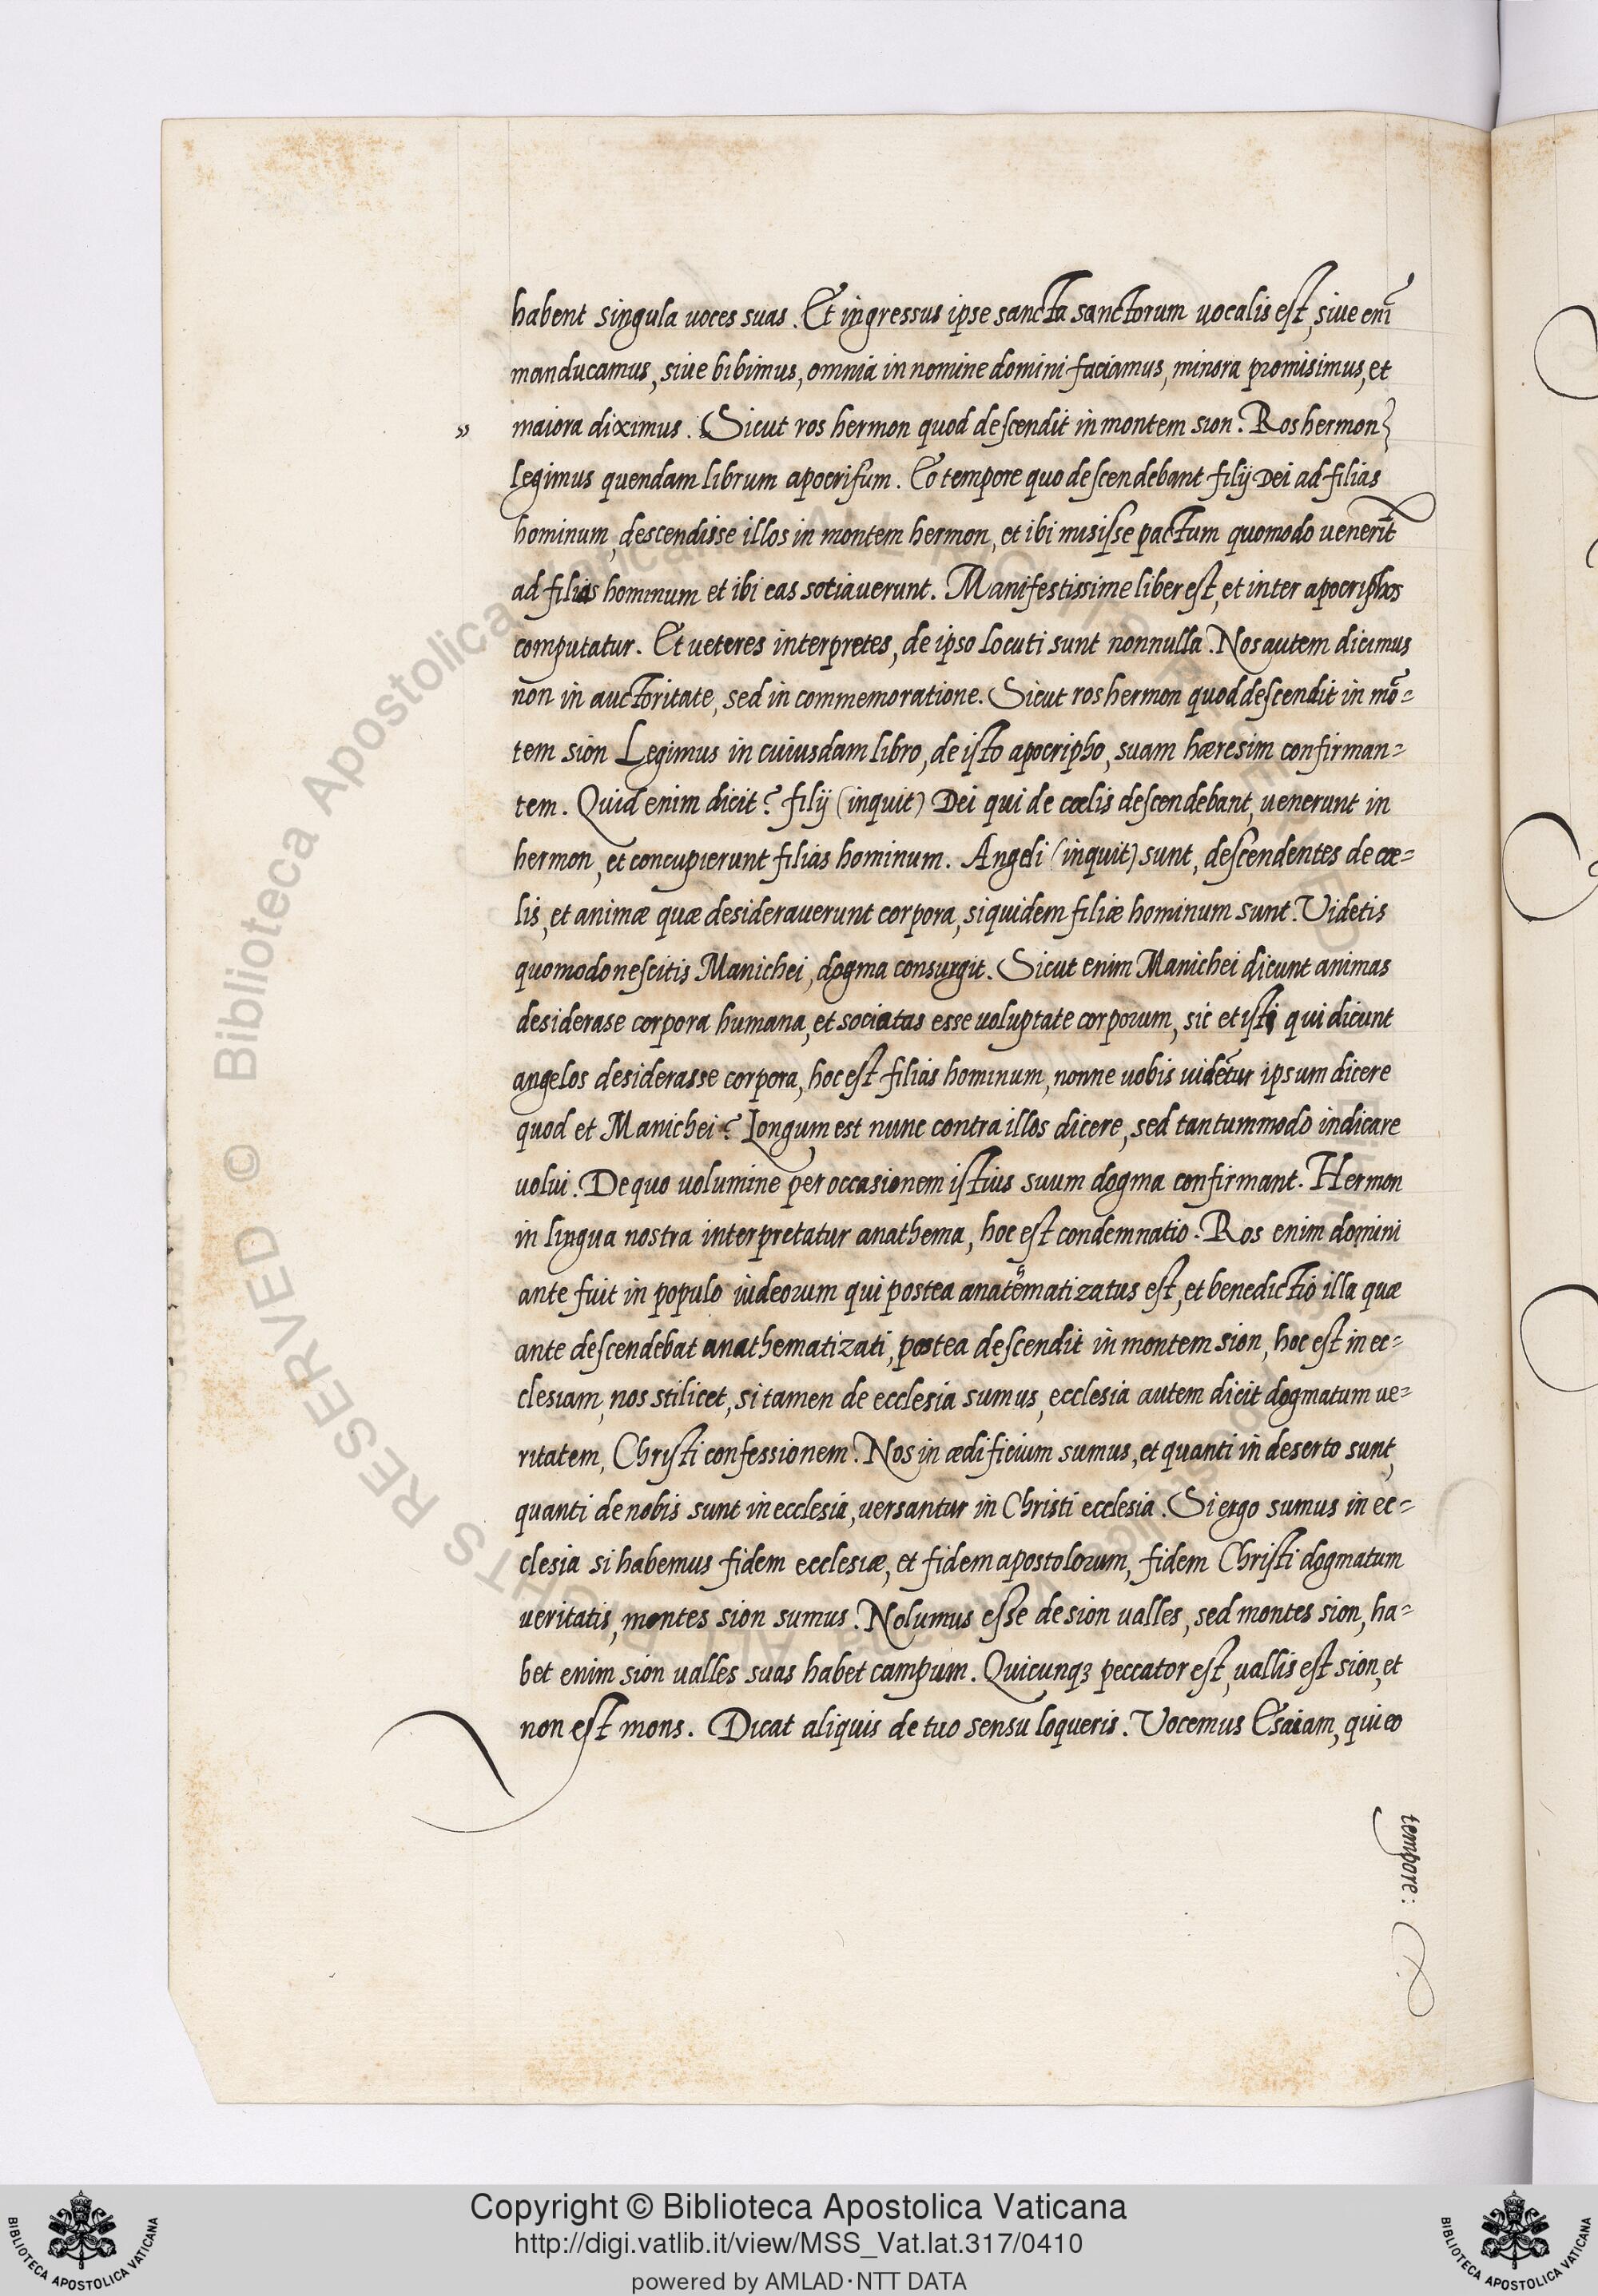 habent singula uoces suas. Et ingressus ipse sancta sanctorum uocalis est, siue enĩ
manducamus, siue bibimus, omnia in nomine domini faciamus, minora promisimus, et
» maiora diximus. Sicut ros hermon quod descendit in montem sion. Ros hermon
legimus quendam librum apocrifum. Eo tempore quo descendebant filij Dei ad filias
hominum, descendisse illos in montem hermon, et ibi misisse pactum quomodo uenerĩt
ad filias hominum et ibi eas sotiauerunt. Manifestissime liber est, et inter apocriphos
computatur. Et ueteres interpretes, de ipso locuti sunt nonnulla. Nos autem dicimus
non in auctoritate, sed in commemoratione. Sicut ros hermon quod descendit in mõ=
tem sion Legimus in cuiusdam libro, de isto apocripho, suam hæresim confirman=
tem. Quid enim dicit? filij (inquit) Dei qui de cœlis descendebant, uenerunt in
hermon, et concupierunt filias hominum. Angeli (inquit) sunt, descendentes de cœ=
lis, et animæ quæ desiderauerunt corpora, siquidem filiæ hominum sunt. Videtis
quomodo nescitis Manichei, dogma consurgit. Sicut enim Manichei dicunt animas
desiderase corpora humana, et sociatas esse uoluptate corporum, sic et isti qui dicunt
angelos desiderasse corpora, hoc est filias hominum, nonne uobis uidẽtur ipsum dicere
quod et Manichei? Longum est nunc contra illos dicere, sed tantummodo indicare
uolui. De quo uolumine per occasionem istius suum dogma confirmant. Hermon
in lingua nostra interpretatur anathema, hoc est condemnatio. Ros enim domini
ante fuit in populo iudeorum qui postea anatematizatus est, et benedictio illa quæ
ante descendebat anathematizati, postea descendit in montem sion, hoc est in ec=
clesiam, nos stilicet, si tamen de ecclesia sumus, ecclesia autem dicit dogmatum ue=
ritatem, Christi confessionem. Nos in ædificium sumus, et quanti in deserto sunt,
quanti de nobis sunt in ecclesia, versantur in Christi ecclesia. Si ergo sumus in ec=
clesia si habemus fidem ecclesiæ, et fidem apostolorum, fidem Christi dogmatum
ueritatis, montes sion sumus. Nolumus esse de sion ualles, sed montes sion, ha=
bet enim sion ualles suas habet campum. Quicunqꝫ peccator est, uallis est sion, et
non est mons. Dicat aliquis de tuo sensu loqueris. Vocemus Esaiam, qui eo
tempore:
© Biblioteca Apostolica Vaticana ALL RIGHTS RESERVED
Copyright © Biblioteca Apostolica Vaticana
http://digi.vatlib.it/view/MSS_Vat.lat.317/0410
powered by AMLAD·NTT DATA
BIBLIOTECA APOSTOLICA VATICANA
BIBLIOTECA APOSTOLICA VATICANA